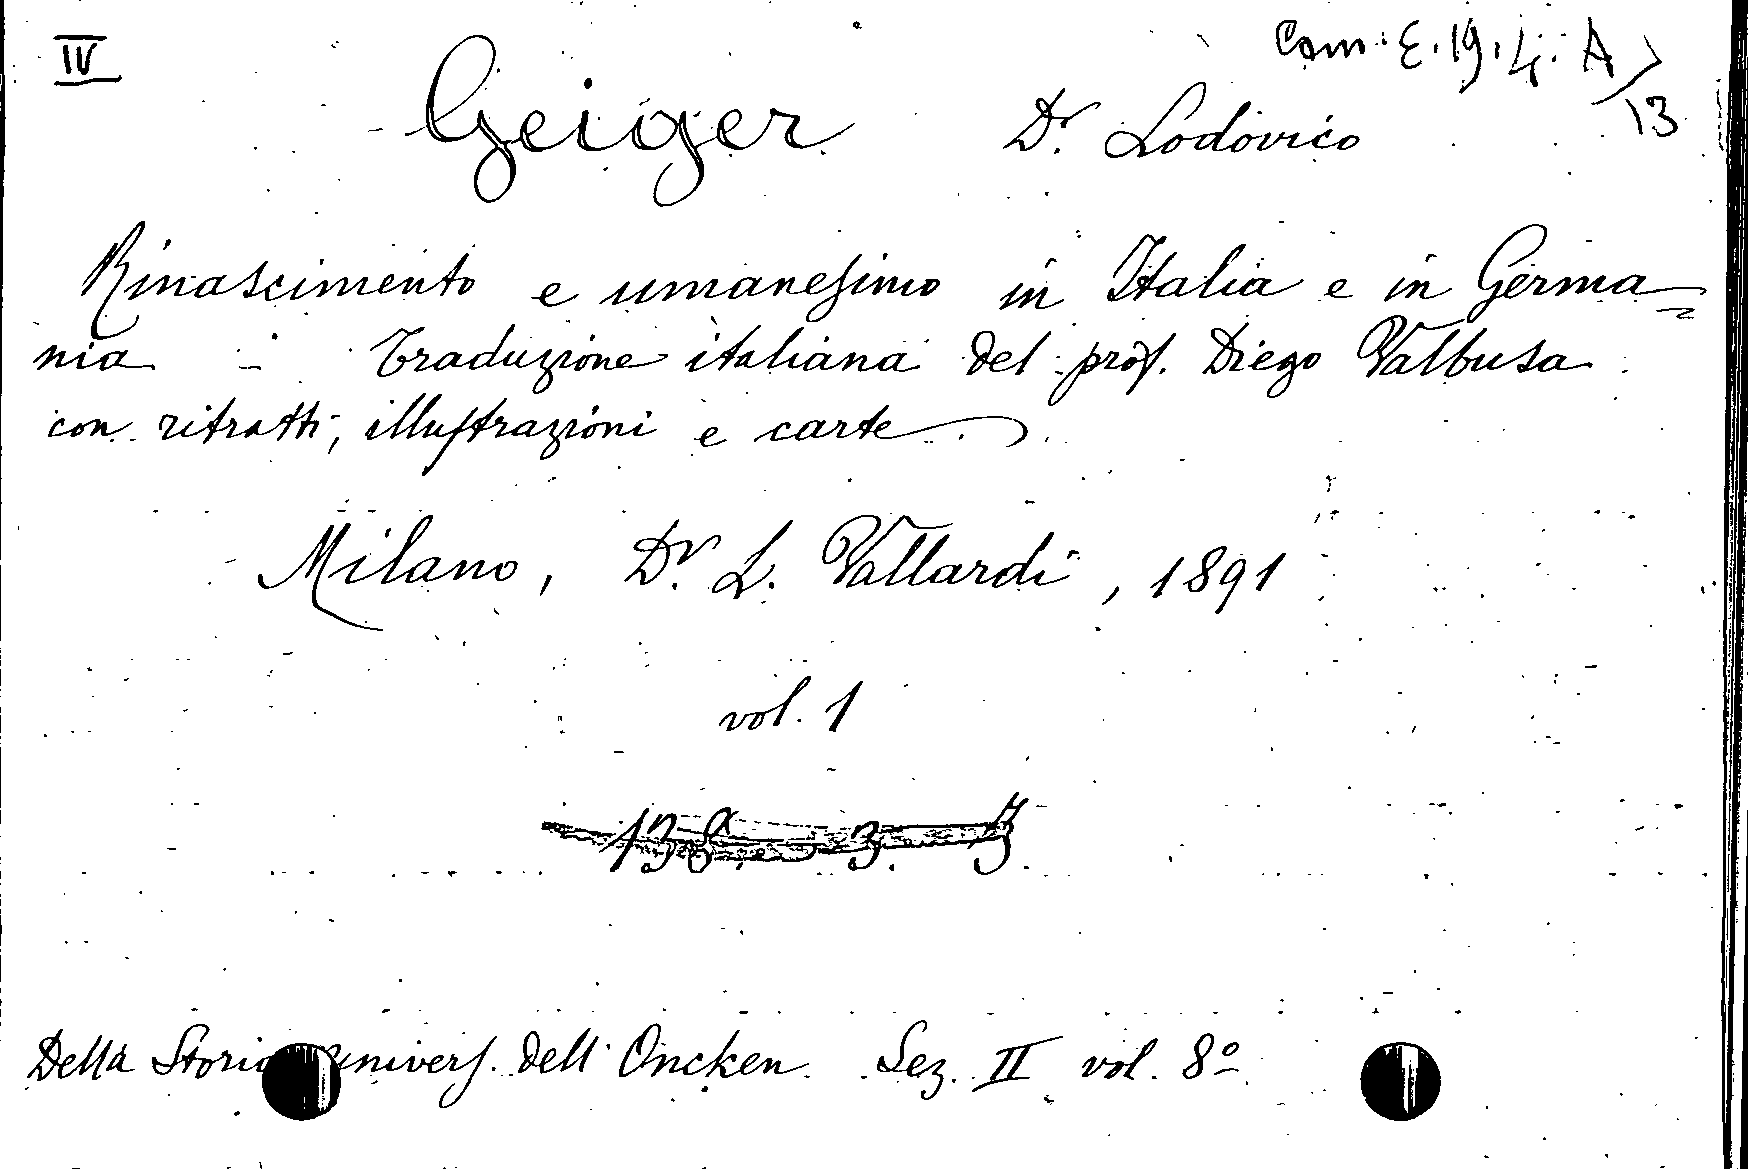 IV
Com. E. 19. 4. A/13
Geiger Dr. Lodovico
Rinascimento e umanesimo in Italia e in Germa=
nia - Traduzione italiana del prof. Diego Valbusa
con ritratti, illustrazioni e carte.
Milano, Dr. L. Vallardi, 1891
vol. 1
Della Storia univers. dell' Oncken. Sez. II vol. 8º